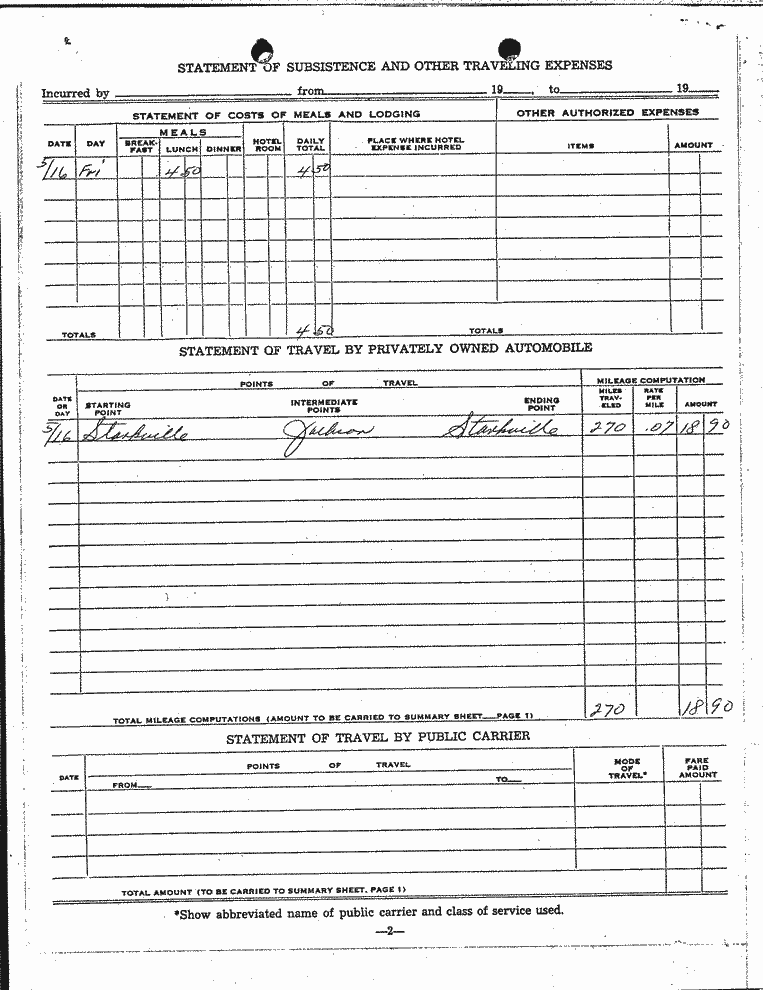 STATEMENT OF SUBSISTENCE AND OTHER TRAVELING EXPENSES
Incurred by from 19 , to 19
STATEMENT OF COSTS OF MEALS AND LODGING OTHER AUTHORIZED EXPENSES
DATE DAY MEALS BREAK-FAST LUNCH DINNER HOTEL ROOM DAILY TOTAL PLACE WHERE HOTEL EXPENSE INCURRED ITEMS AMOUNT
5/16 Fri 4 50 4 50
TOTALS 4 50 TOTALS
STATEMENT OF TRAVEL BY PRIVATELY OWNED AUTOMOBILE
POINTS OF TRAVEL MILEAGE COMPUTATION
DATE OR DAY STARTING POINT INTERMEDIATE POINTS ENDING POINT MILES TRAV-ELED RATE PER MILE AMOUNT
5/16 Starkville Jackson Starkville 270 .07 18 90
TOTAL MILEAGE COMPUTATIONS (AMOUNT TO BE CARRIED TO SUMMARY SHEET—PAGE 1) 270 18 90
STATEMENT OF TRAVEL BY PUBLIC CARRIER
DATE POINTS OF TRAVEL MODE OF TRAVEL* FARE PAID AMOUNT
FROM— TO—
TOTAL AMOUNT (TO BE CARRIED TO SUMMARY SHEET, PAGE 1)
*Show abbreviated name of public carrier and class of service used.
—2—